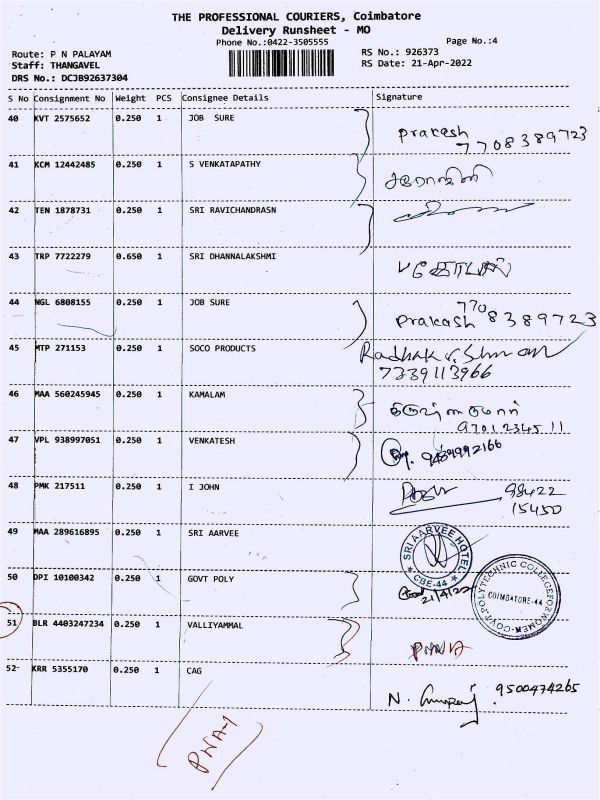 THE PROFESSIONAL COURIERS, Coimbatore
Delivery Runsheet - MO
Phone No.:0422-3505555
Page No.:4
Route: P N PALAYAM
RS No.: 926373
Staff: THANGAVEL
RS Date: 21-Apr-2022
DRS No.: DCJB92637304
S No Consignment No Weight PCS Consignee Details Signature
40 KVT 2575652 0.250 1 JOB SURE
prakash
7708389723
41 KCM 12442485 0.250 1 S VENKATAPATHY
42 TEN 1878731 0.250 1 SRI RAVICHANDRASN
43 TRP 7722279 0.650 1 SRI DHANNALAKSHMI
44 NGL 6808155 0.250 1 JOB SURE
prakash 7708389723
45 MTP 271153 0.250 1 SOCO PRODUCTS
7339113966
46 MAA 560245945 0.250 1 KAMALAM
9701234511
47 VPL 938997051 0.250 1 VENKATESH
48 PMK 217511 0.250 1 I JOHN
98422
15450
49 MAA 289616895 0.250 1 SRI AARVEE
SRI AARVEE HOTEL
CBE-44
50 DPI 10100342 0.250 1 GOVT POLY
21/4/22
COIMBATORE-44
51 BLR 4403247234 0.250 1 VALLIYAMMAL
52 KRR 5355170 0.250 1 CAG
9500474265